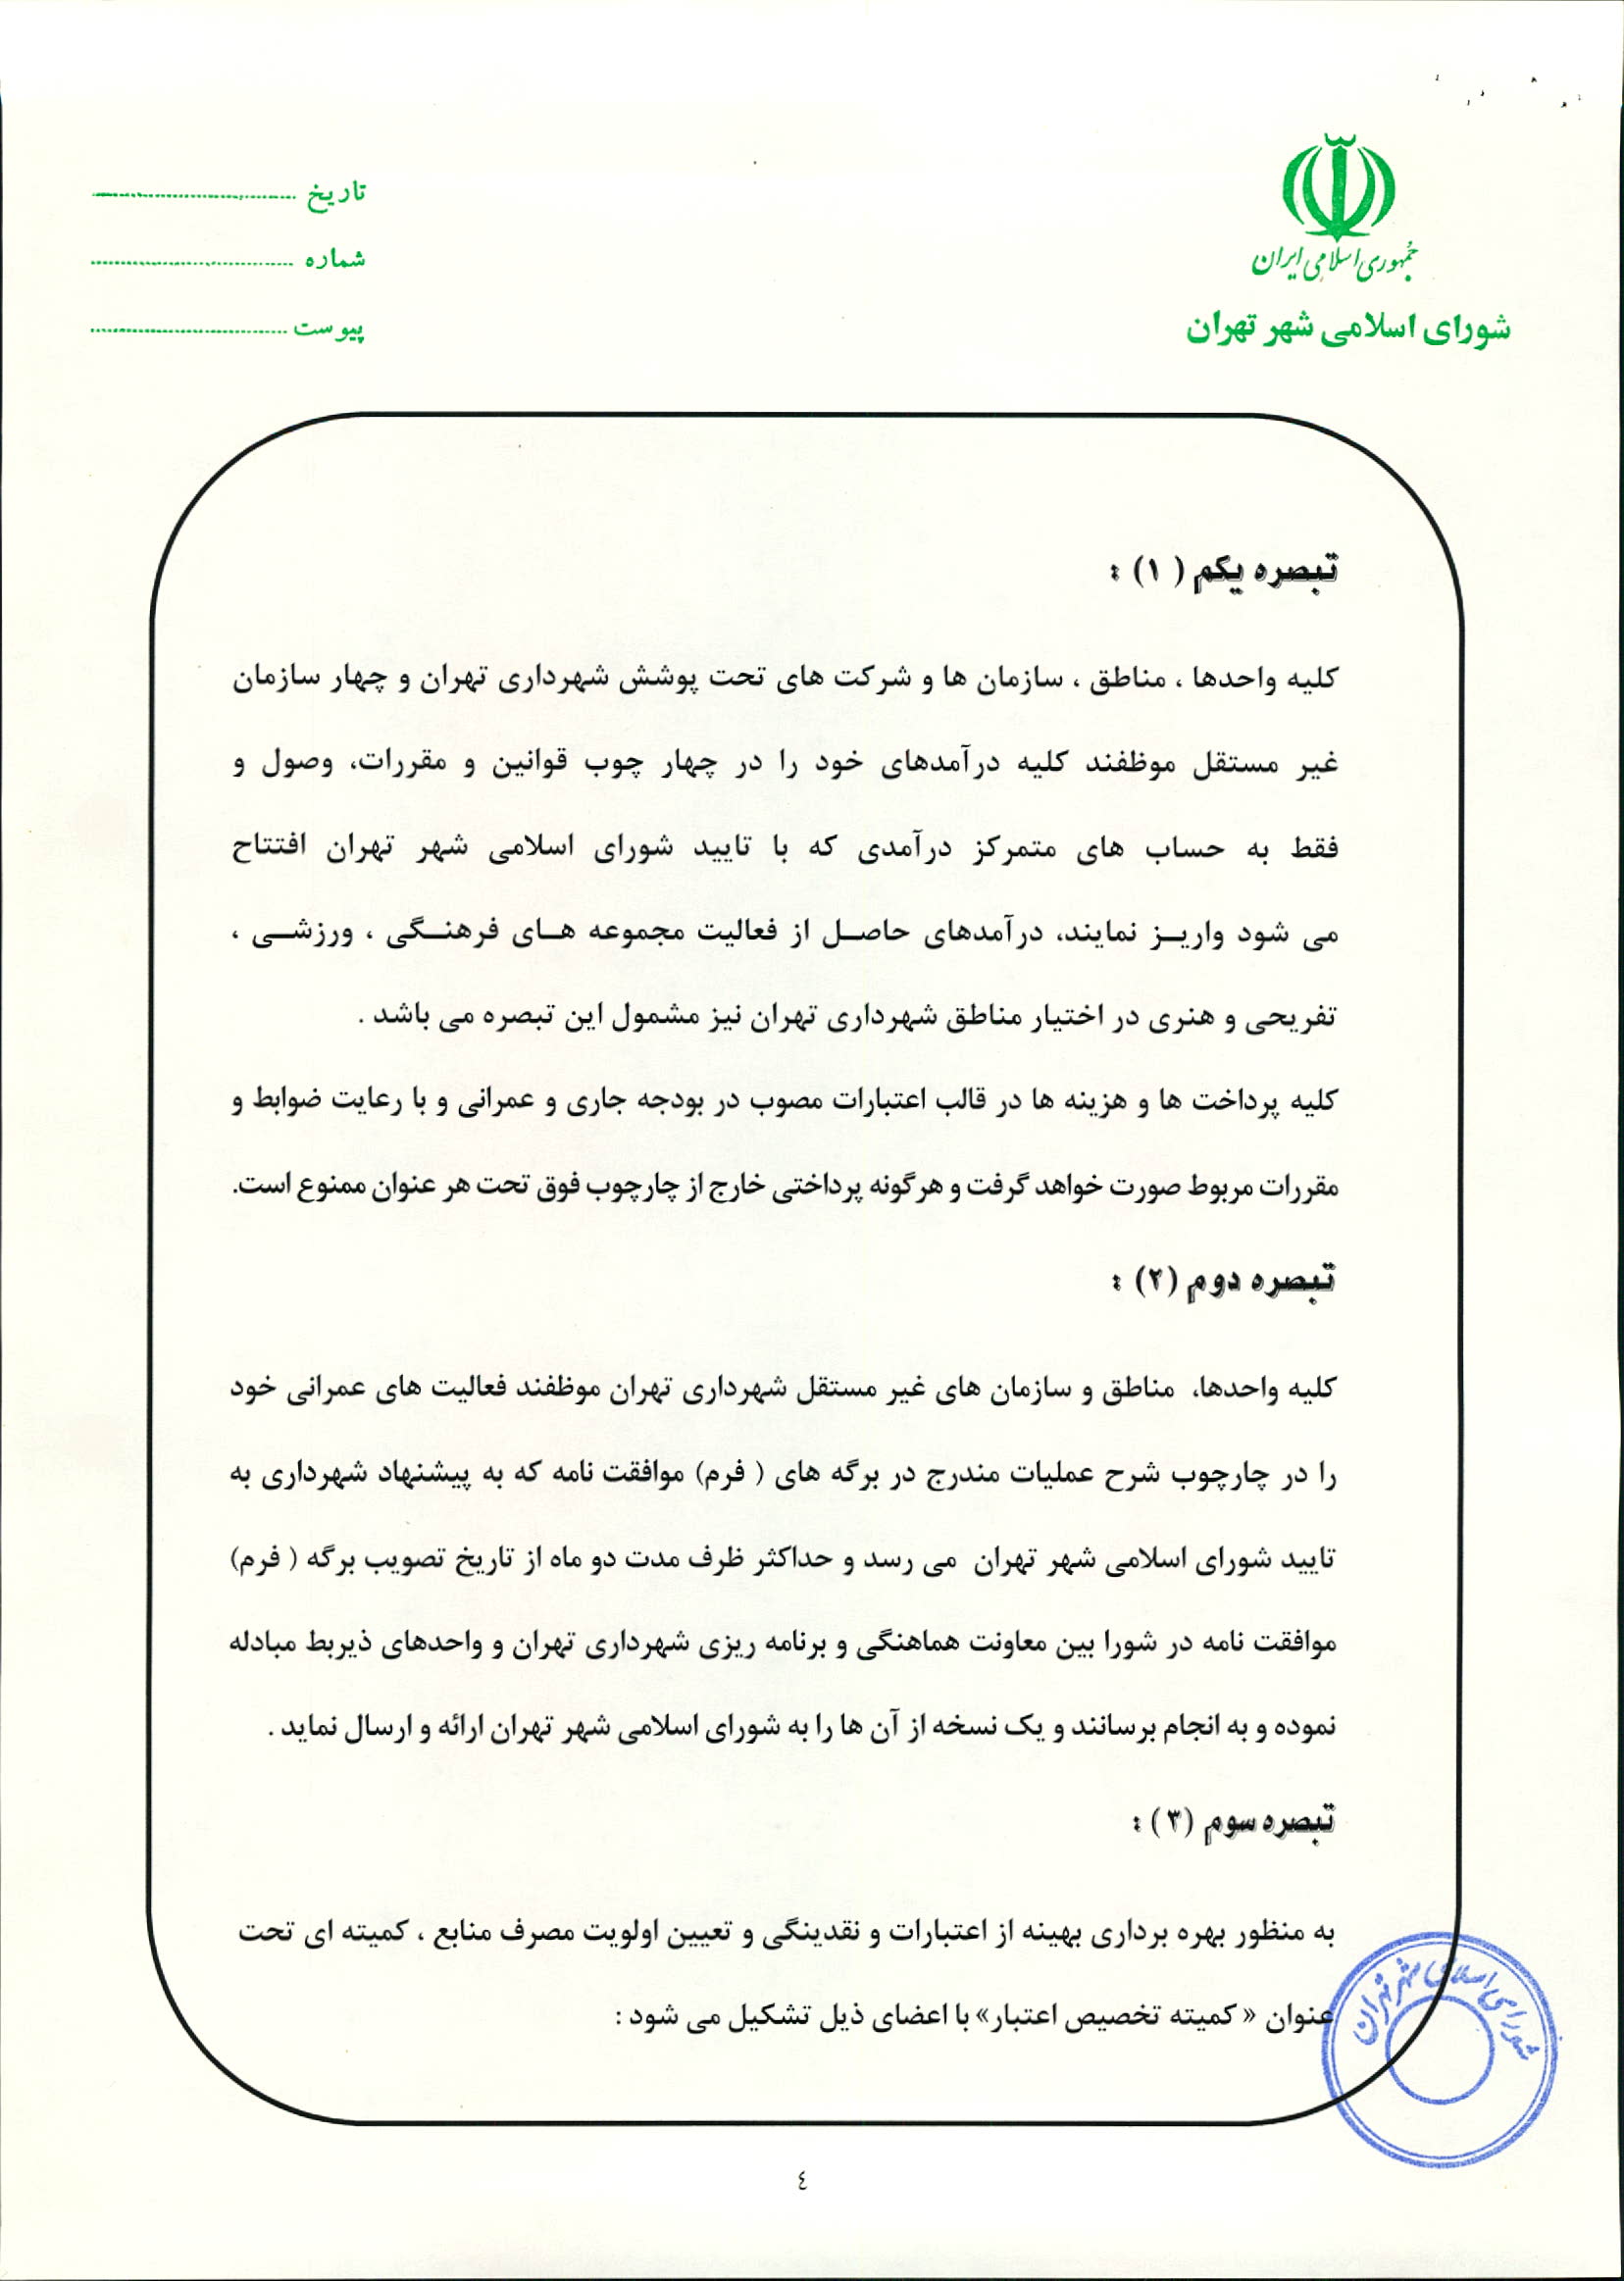 جمهوری اسلامی ایران
شورای اسلامی شهر تهران
تاریخ
شماره
پیوست
تبصره یکم ( ۱) :
کلیه واحدها ، مناطق ، سازمان ها و شرکت های تحت پوشش شهرداری تهران و چهار سازمان
غیر مستقل موظفند کلیه درآمدهای خود را در چهار چوب قوانین و مقررات، وصول و
فقط به حساب های متمرکز درآمدی که با تایید شورای اسلامی شهر تهران افتتاح
می شود واریـز نمایند، درآمدهای حاصـل از فعالیت مجموعه هـای فرهنـگی ، ورزشـی ،
تفریحی و هنری در اختیار مناطق شهرداری تهران نیز مشمول این تبصره می باشد .
کلیه پرداخت ها و هزینه ها در قالب اعتبارات مصوب در بودجه جاری و عمرانی و با رعایت ضوابط و
مقررات مربوط صورت خواهد گرفت و هرگونه پرداختی خارج از چارچوب فوق تحت هر عنوان ممنوع است.
تبصره دوم (۲) :
کلیه واحدها، مناطق و سازمان های غیر مستقل شهرداری تهران موظفند فعالیت های عمرانی خود
را در چارچوب شرح عملیات مندرج در برگه های ( فرم) موافقت نامه که به پیشنهاد شهرداری به
تایید شورای اسلامی شهر تهران می رسد و حداکثر ظرف مدت دو ماه از تاریخ تصویب برگه ( فرم)
موافقت نامه در شورا بین معاونت هماهنگی و برنامه ریزی شهرداری تهران و واحدهای ذیربط مبادله
نموده و به انجام برسانند و یک نسخه از آن ها را به شورای اسلامی شهر تهران ارائه و ارسال نماید .
تبصره سوم (۳ ) :
به منظور بهره برداری بهینه از اعتبارات و نقدینگی و تعیین اولویت مصرف منابع ، کمیته ای تحت
عنوان « کمیته تخصیص اعتبار» با اعضای ذیل تشکیل می شود :
شورای اسلامی شهر تهران
٤